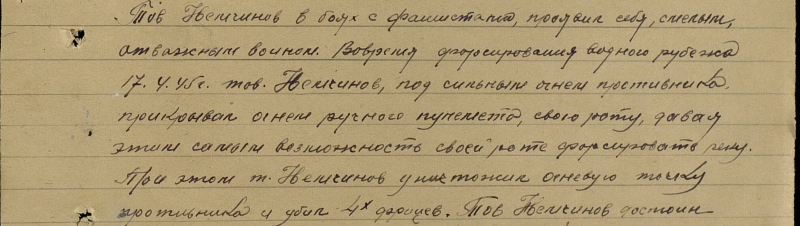 Тов Немчинов в боях с фашистами, проявил себя, смелым,
отважным воином. Вовремя форсирования водного рубежа
17.4.45г. тов. Немчинов, под сильным огнем противника,
прикрывал огнем ручного пулемета, свою роту, давая
этим самым возможность своей роте форсировать реку.
При этом т. Немчинов уничтожил огневую точку
противника и убил 4х фрицев. Тов Немчинов достоин